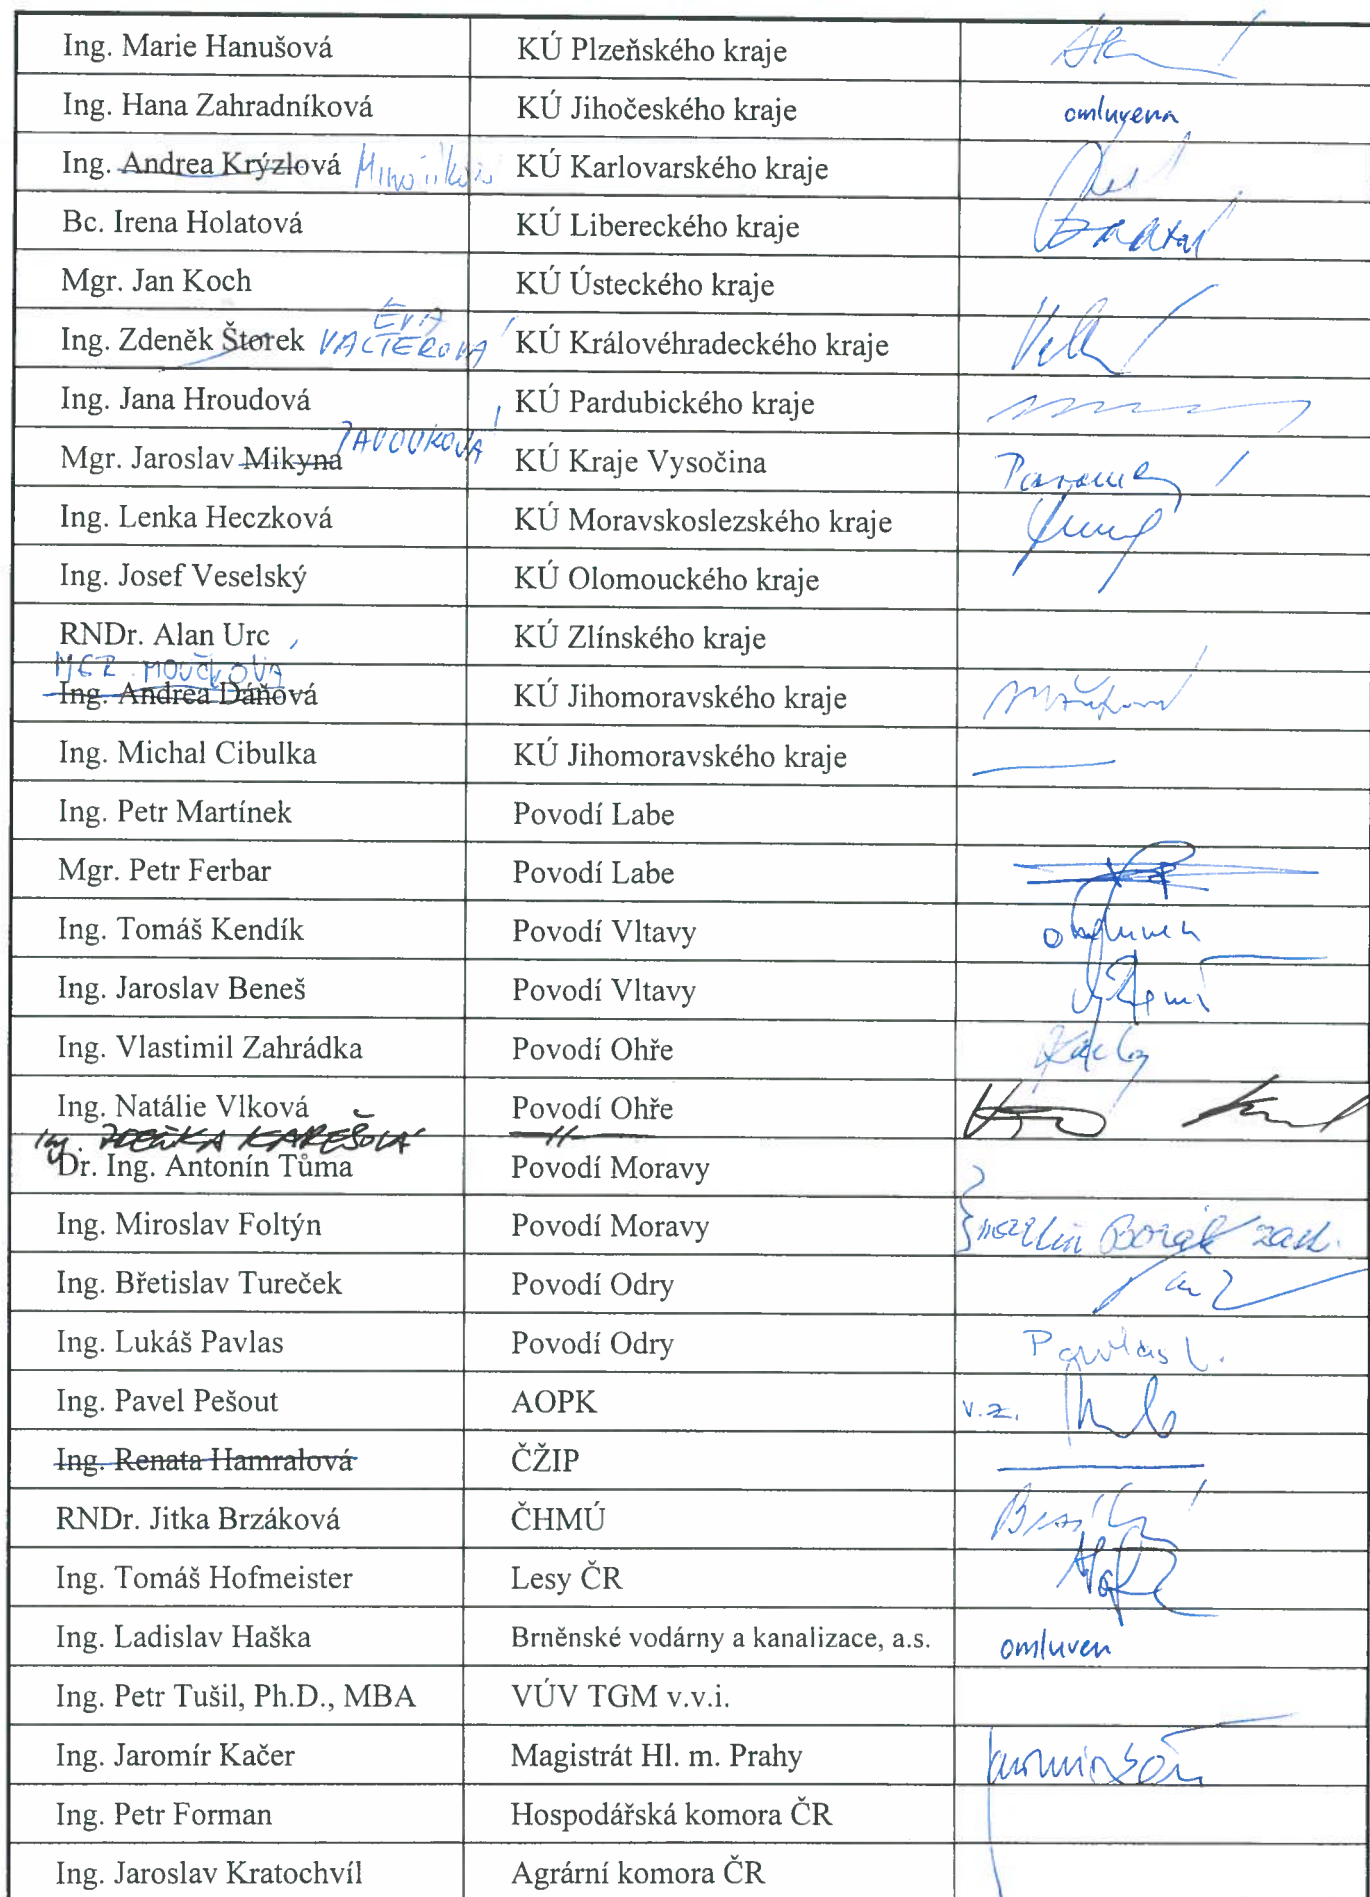 Ing. Marie Hanušová KÚ Plzeňského kraje
Ing. Hana Zahradníková KÚ Jihočeského kraje omluvena
Ing. Andrea Krýzlová KÚ Karlovarského kraje
Bc. Irena Holatová KÚ Libereckého kraje
Mgr. Jan Koch KÚ Ústeckého kraje
EVA
Ing. Zdeněk Štorek VALTEROVÁ KÚ Královéhradeckého kraje
Ing. Jana Hroudová KÚ Pardubického kraje
Mgr. Jaroslav Mikyna KÚ Kraje Vysočina
Ing. Lenka Heczková KÚ Moravskoslezského kraje
Ing. Josef Veselský KÚ Olomouckého kraje
RNDr. Alan Urc KÚ Zlínského kraje
MGR. MOUČKOVÁ
Ing. Andrea Dáňová KÚ Jihomoravského kraje
Ing. Michal Cibulka KÚ Jihomoravského kraje
Ing. Petr Martínek Povodí Labe
Mgr. Petr Ferbar Povodí Labe
Ing. Tomáš Kendík Povodí Vltavy omluven
Ing. Jaroslav Beneš Povodí Vltavy
Ing. Vlastimil Zahrádka Povodí Ohře
Ing. Natálie Vlková Povodí Ohře
Ing. ZDEŇKA KAREŠOVÁ -//-
Dr. Ing. Antonín Tůma Povodí Moravy
Ing. Miroslav Foltýn Povodí Moravy
Ing. Břetislav Tureček Povodí Odry
Ing. Lukáš Pavlas Povodí Odry Pavlas L.
Ing. Pavel Pešout AOPK v.z.
Ing. Renata Hamralová ČŽIP
RNDr. Jitka Brzáková ČHMÚ
Ing. Tomáš Hofmeister Lesy ČR
Ing. Ladislav Haška Brněnské vodárny a kanalizace, a.s. omluven
Ing. Petr Tušil, Ph.D., MBA VÚV TGM v.v.i.
Ing. Jaromír Kačer Magistrát Hl. m. Prahy
Ing. Petr Forman Hospodářská komora ČR
Ing. Jaroslav Kratochvíl Agrární komora ČR